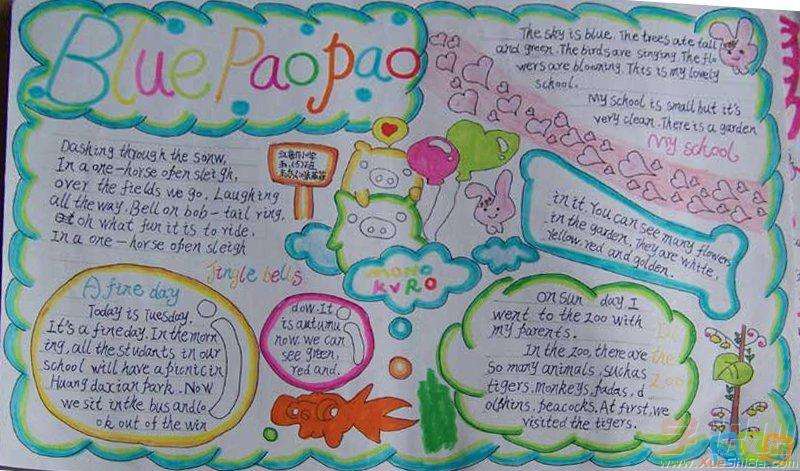 Blue Paopao
Dashing through the sonw,
In a one-horse ofen sleigh,
over the fields we go. Laughing
all the way. Bell on bob-tail ring.
oh what fun it is to ride.
In a one-horse ofen sleigh
Jingle bells.
The sky is blue. The trees ate tall
and green. The birds are singing. The flo
wers are blowning. This is my lovely
school.
My school is small but it's
very clean. There is a garden
My school
in it You can see many flowers
in the garden. They are white,
Yellow, red and golden.
MOMO
KVRO
A fine day
Today is Tuesday.
It's a fineday. In the morn
ing, all the students in our
school will have a picnic in
Huang daxian park. Now
we sit in the bus and lo
ok out of the win
dow. It
is autumu
now we can
see green,
red and.
On Sun day I
went to the zoo with
my parents.
In the zoo, there are
So many animals, suchas
tigers, monkeys, padas, d
olthins, peacocks. At first, we
visited the tigers.
the
Zoo
www.XueShiBa.com